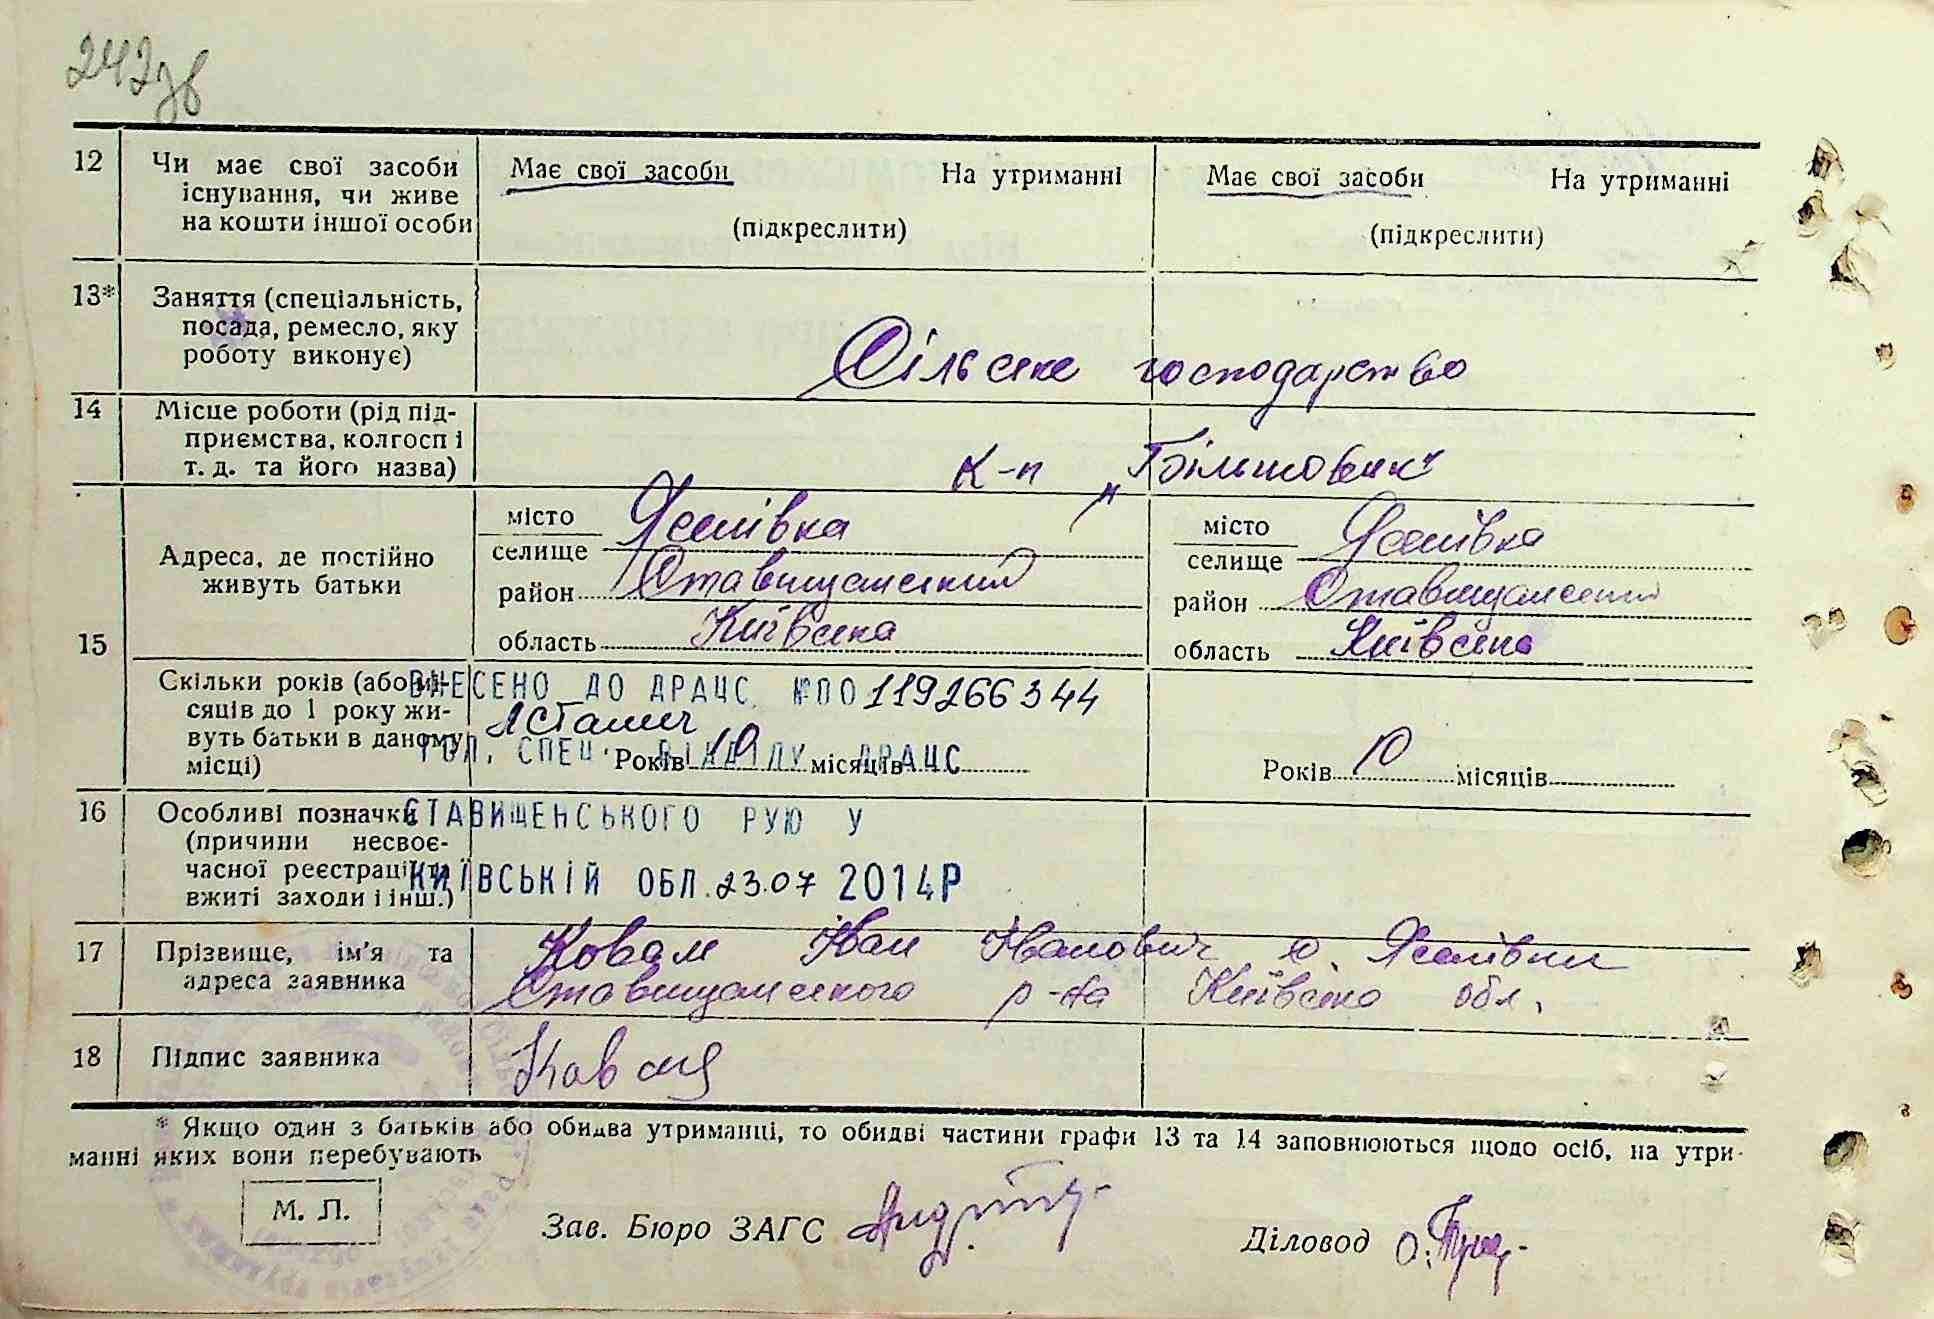 242зв
12 Чи має свої засоби існування, чи живе на кошти іншої особи
Має свої засоби На утриманні
(підкреслити)
Має свої засоби На утриманні
(підкреслити)
13* Заняття (спеціальність, посада, ремесло, яку роботу виконує)
Сільське господарство
14 Місце роботи (рід підприємства, колгосп і т. д. та його назва)
к-п „Більшовик"
15 Адреса, де постійно живуть батьки
місто
селище Яселівка
район Ставищанський
область Київська
місто
селище Яселівка
район Ставищанський
область Київська
Скільки років (або місяців до 1 року живуть батьки в даному місці)
Років 10 місяців
Років 10 місяців
ВНЕСЕНО ДО ДРАЦС №00119266344
ГОЛ. СПЕЦ. ВІДДІЛУ ДРАЦС
СТАВИЩЕНСЬКОГО РУЮ У
КИЇВСЬКІЙ ОБЛ. 23.07 2014Р
16 Особливі позначки (причини несвоєчасної реєстрації та вжиті заходи і інш.)
17 Прізвище, ім'я та адреса заявника
Коваль Іван Іванович с. Яселівки
Ставищанського р-на Київська обл.
18 Підпис заявника
Коваль
* Якщо один з батьків або обидва утриманці, то обидві частини графи 13 та 14 заповнюються щодо осіб, на утри-
манні яких вони перебувають
М. П.
Зав. Бюро ЗАГС
Діловод